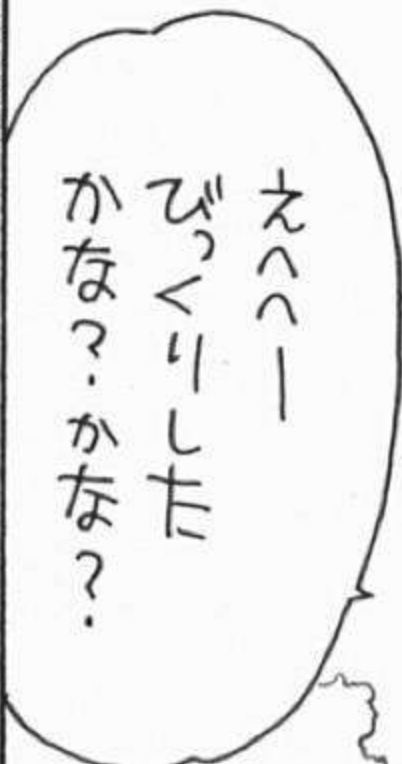 えへへー
びっくりした
かな？かな？